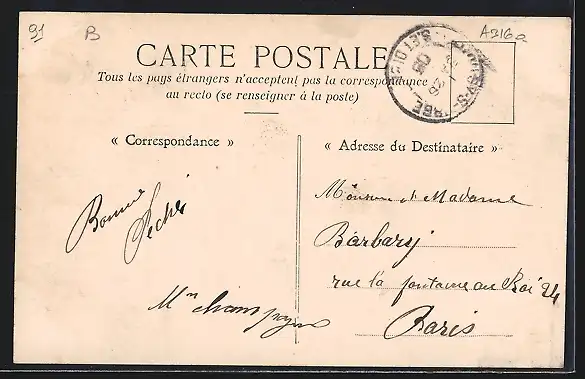 91
B
A216a
CARTE POSTALE
Tous les pays étrangers n'acceptent pas la correspondance
au recto (se renseigner à la poste)
« Correspondance »
« Adresse du Destinataire »
Monsieur et Madame
Barbary
rue la fontaine au Roi 24
Paris
Bonne
Pêche
Mon champagne